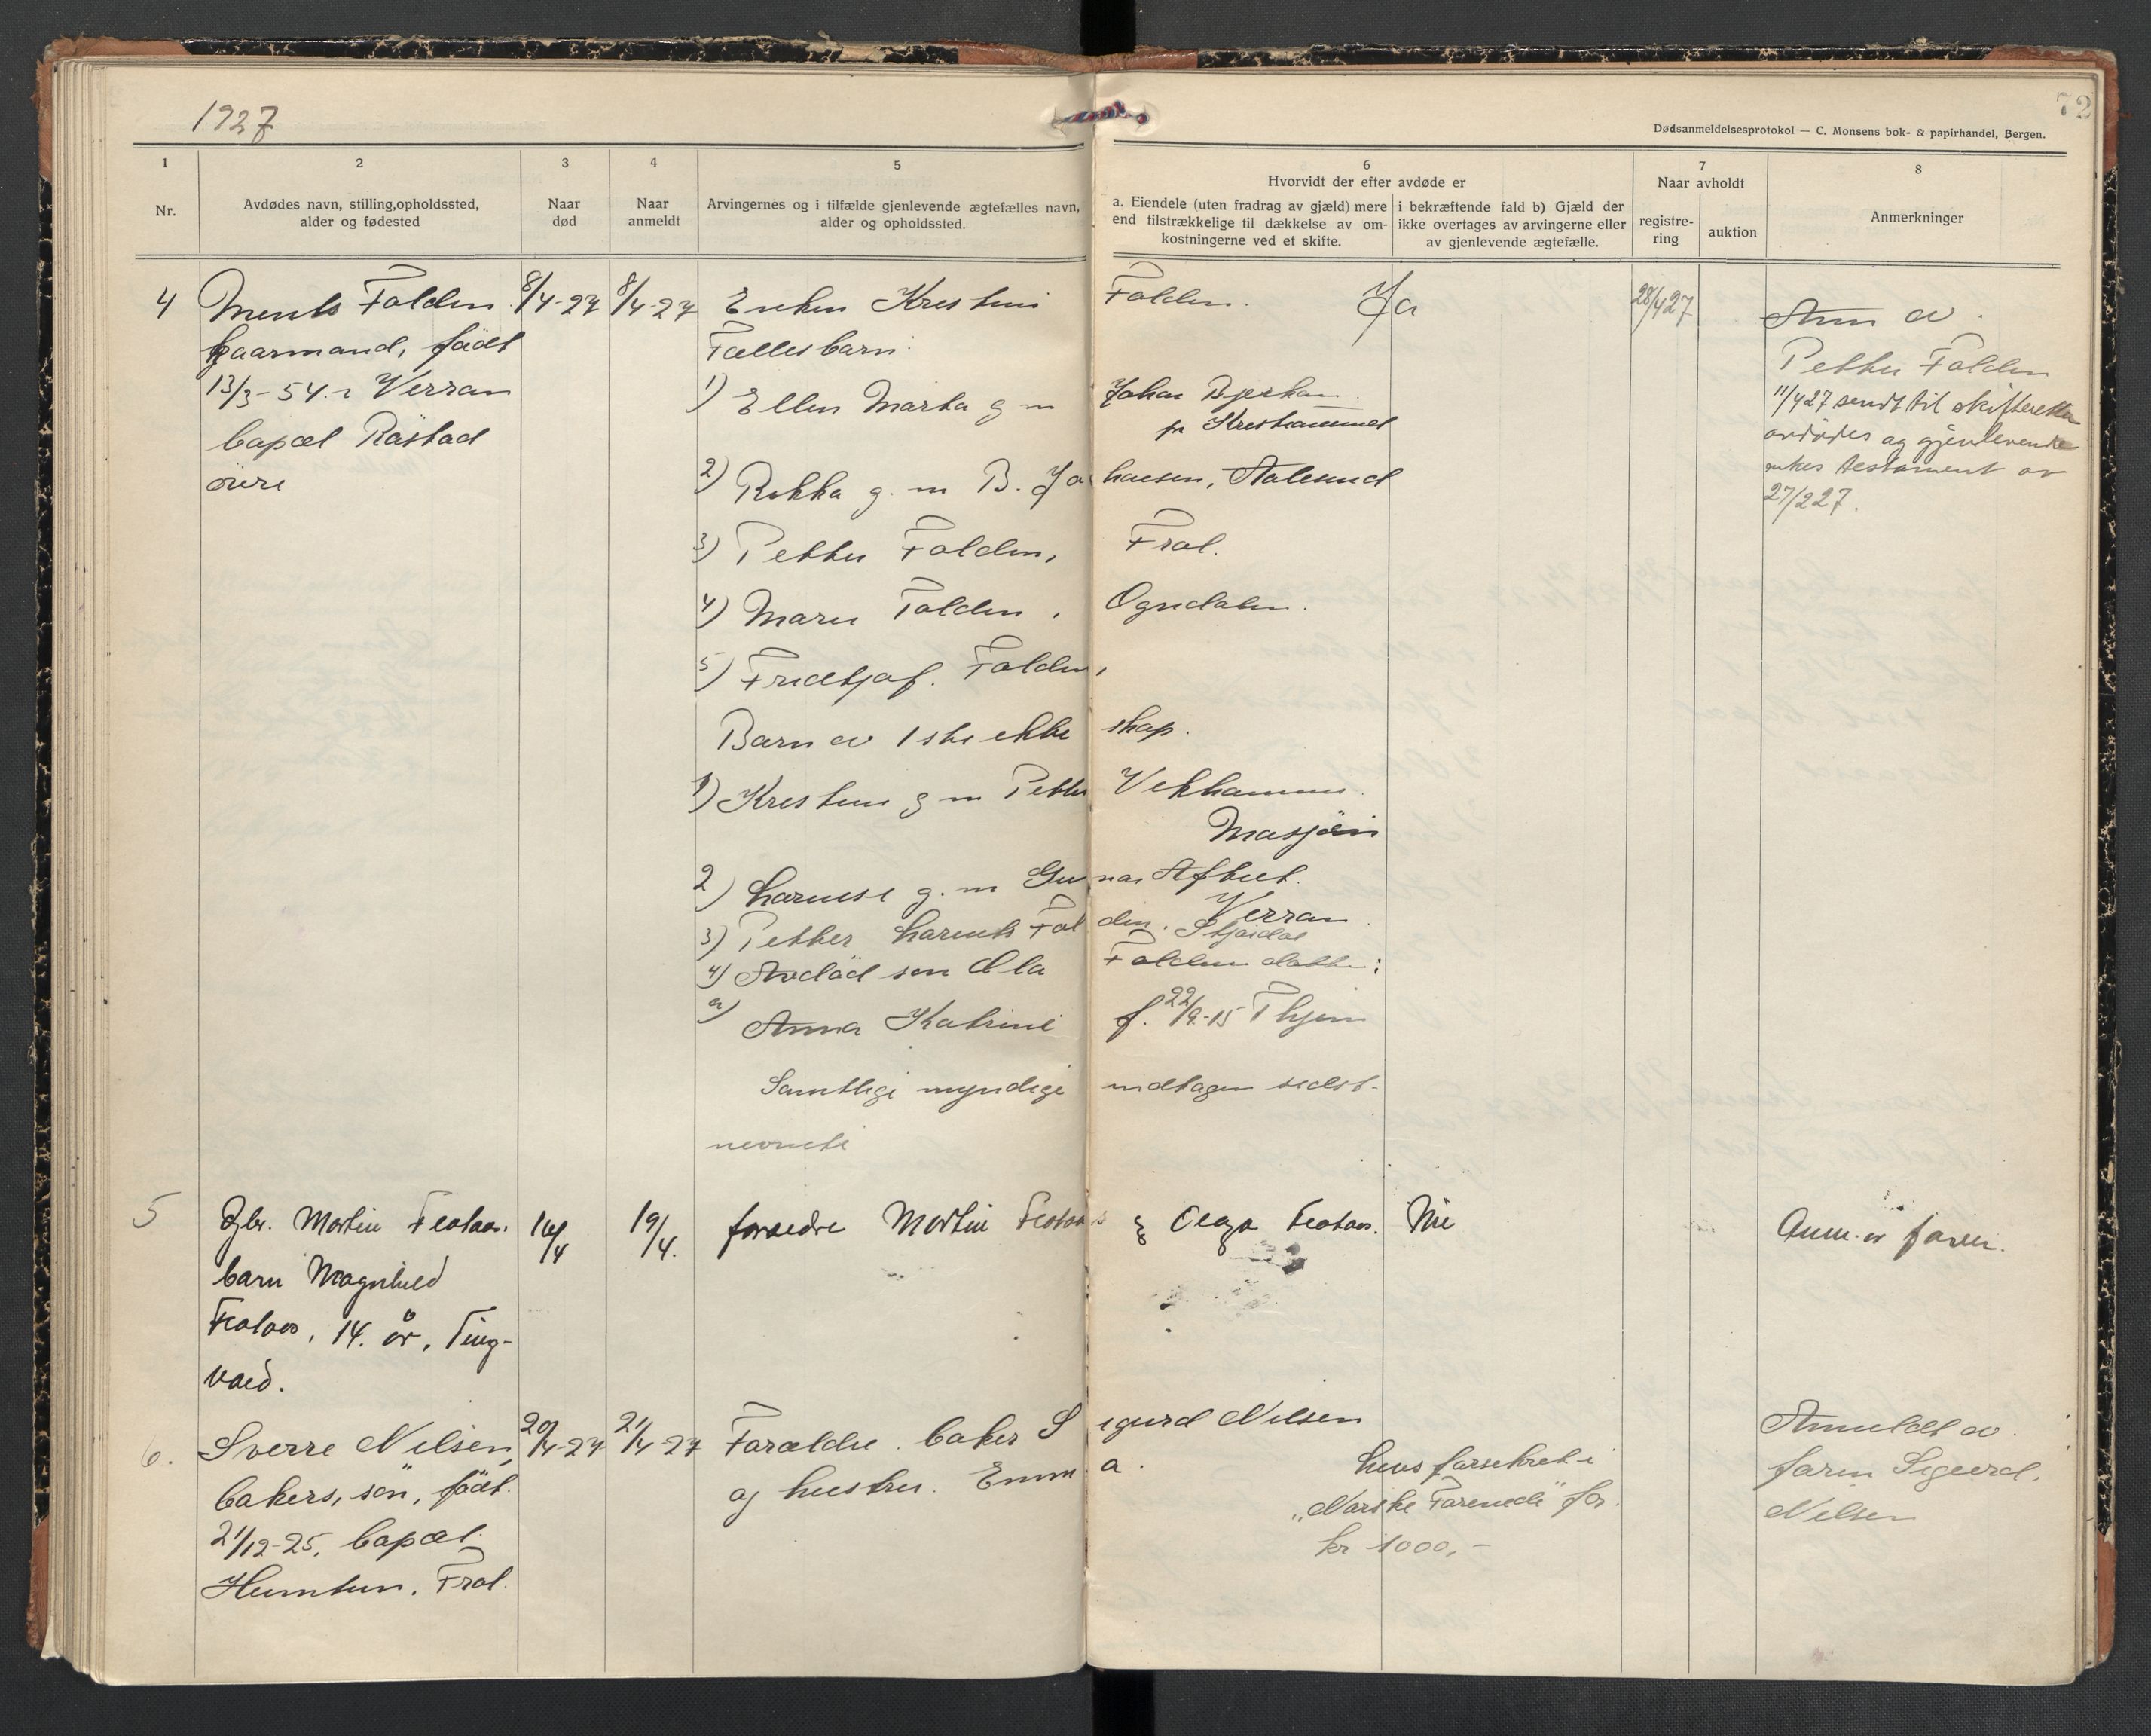 1927
72
Dødsanmeldelsesprotokol — C. Monsens bok- & papirhandel, Bergen.
1
Nr.
2
Avdødes navn, stilling, opholdssted,
alder og fødested
3
Naar
død
4
Naar
anmeldt
5
Arvingernes og i tilfælde gjenlevende ægtefælles navn,
alder og opholdssted.
6
Hvorvidt der efter avdøde er
a. Eiendele (uten fradrag av gjæld) mere
end tilstrækkelige til dækkelse av om-
kostningerne ved et skifte.
i bekræftende fald b) Gjæld der
ikke overtages av arvingerne eller
av gjenlevende ægtefælle.
7
Naar avholdt
registre-
ring
auktion
8
Anmerkninger
4
Ments Folden
Gaarmand, född
13/3-54 i Verran
bopæl Råstad
öure
8/4-27
8/4-27
Enken Kristine Folden.
Fællesbarn:
1) Ellen Marta g m Johan
pr Kristiansund
2) Rikka g. m B. Johansen, Aalesund
3) Petter Folden, Frol.
4) Folden, Ogndalen.
5) Fridtjof. Folden,
Barn av 1ste ekteskap.
1) g m Petter
Mosjöen
2) g. m Gunnar
Verran
3) Petter Folden.
4) Avdöd sön Ola Folden datter:
a) Anna Katrine f. 22/9-15
Samtlige myndige undtagen sidst-
nevnte
Ja
28/4 27
Anm av
Petter Folden
11/4 27 sendt til skifteretten
avdødes og gjenlevende
enkes testament av
27/2 27.
5
Gbr. Martin
barn Magnhild
14. år, Ting-
vold.
16/4
19/4.
foreldre Martin & Olga
Nei
Anm. av faren.
6.
Sverre Nilsen,
bakers, sön, född.
21/12-25. bopæl
Frol.
20/4-27
21/4-27
Forældre. baker Sigurd Nilsen
og hustru. Emma.
Livsforsikret i
„Norske Forenede" for
kr 1000,-
Anmeldt av
faren Sigurd.
Nilsen